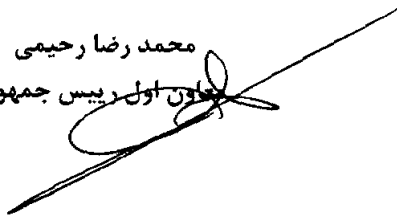 محمد رضا رحیمی
معاون اول رییس جمهو